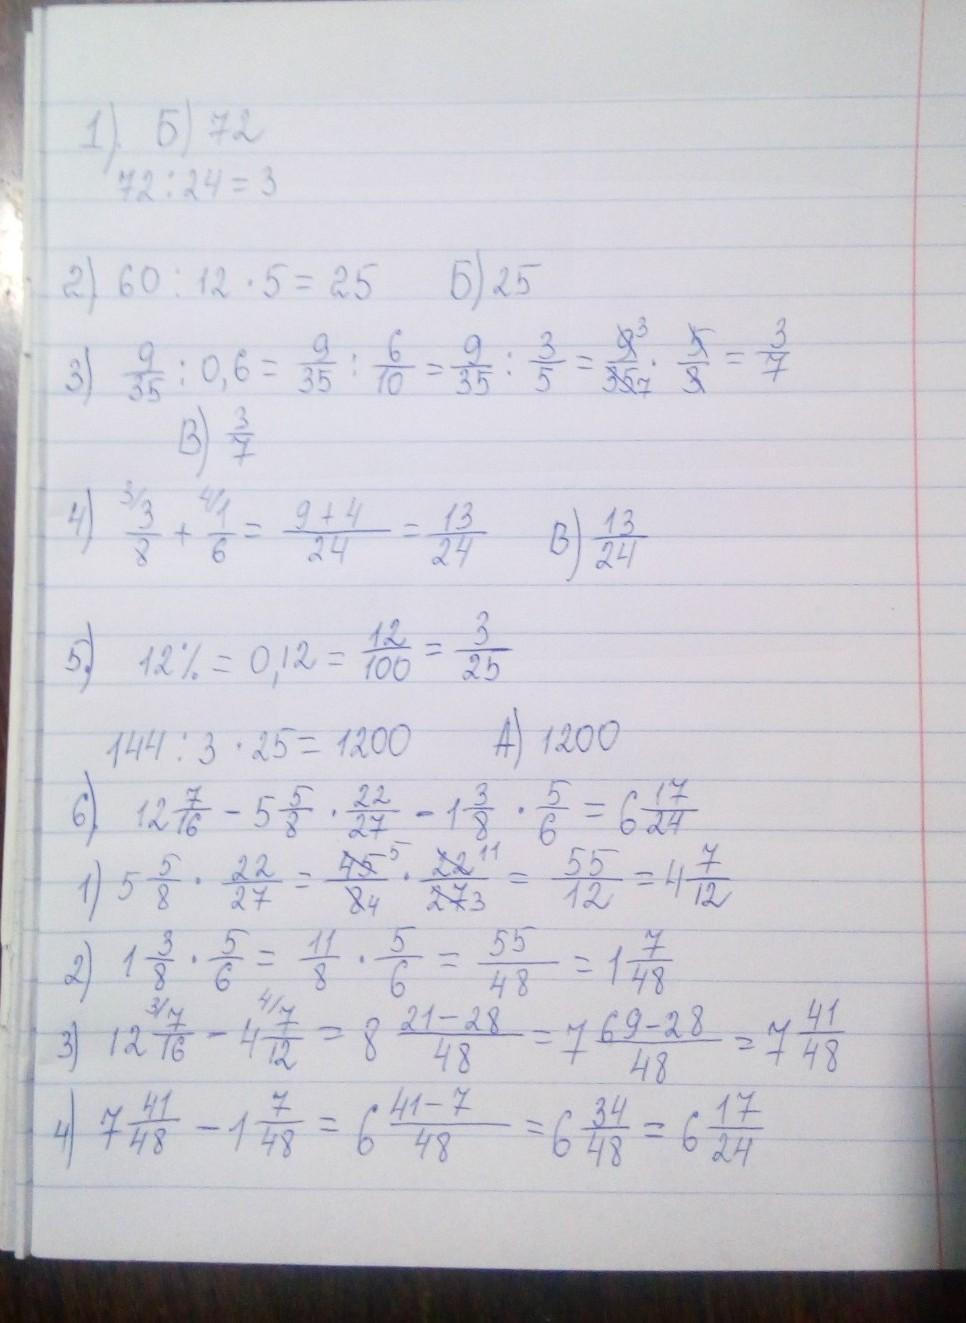 1). Б) 72
72 : 24 = 3
2) 60 : 12 · 5 = 25 Б) 25
3) 9/35 : 0,6 = 9/35 : 6/10 = 9/35 : 3/5 = 9³/35₇ · 5/3 = 3/7
В) 3/7
4) ³⁄3/8 + ⁴⁄1/6 = (9+4)/24 = 13/24 В) 13/24
5) 12% = 0,12 = 12/100 = 3/25
144 : 3 · 25 = 1200 А) 1200
6) 12 7/16 - 5 5/8 · 22/27 - 1 3/8 · 5/6 = 6 17/24
1) 5 5/8 · 22/27 = 45⁵/8₄ · 22¹¹/27₃ = 55/12 = 4 7/12
2) 1 3/8 · 5/6 = 11/8 · 5/6 = 55/48 = 1 7/48
3) 12 ³⁄7/16 - 4 ⁴⁄7/12 = 8 (21-28)/48 = 7 (69-28)/48 = 7 41/48
4) 7 41/48 - 1 7/48 = 6 (41-7)/48 = 6 34/48 = 6 17/24